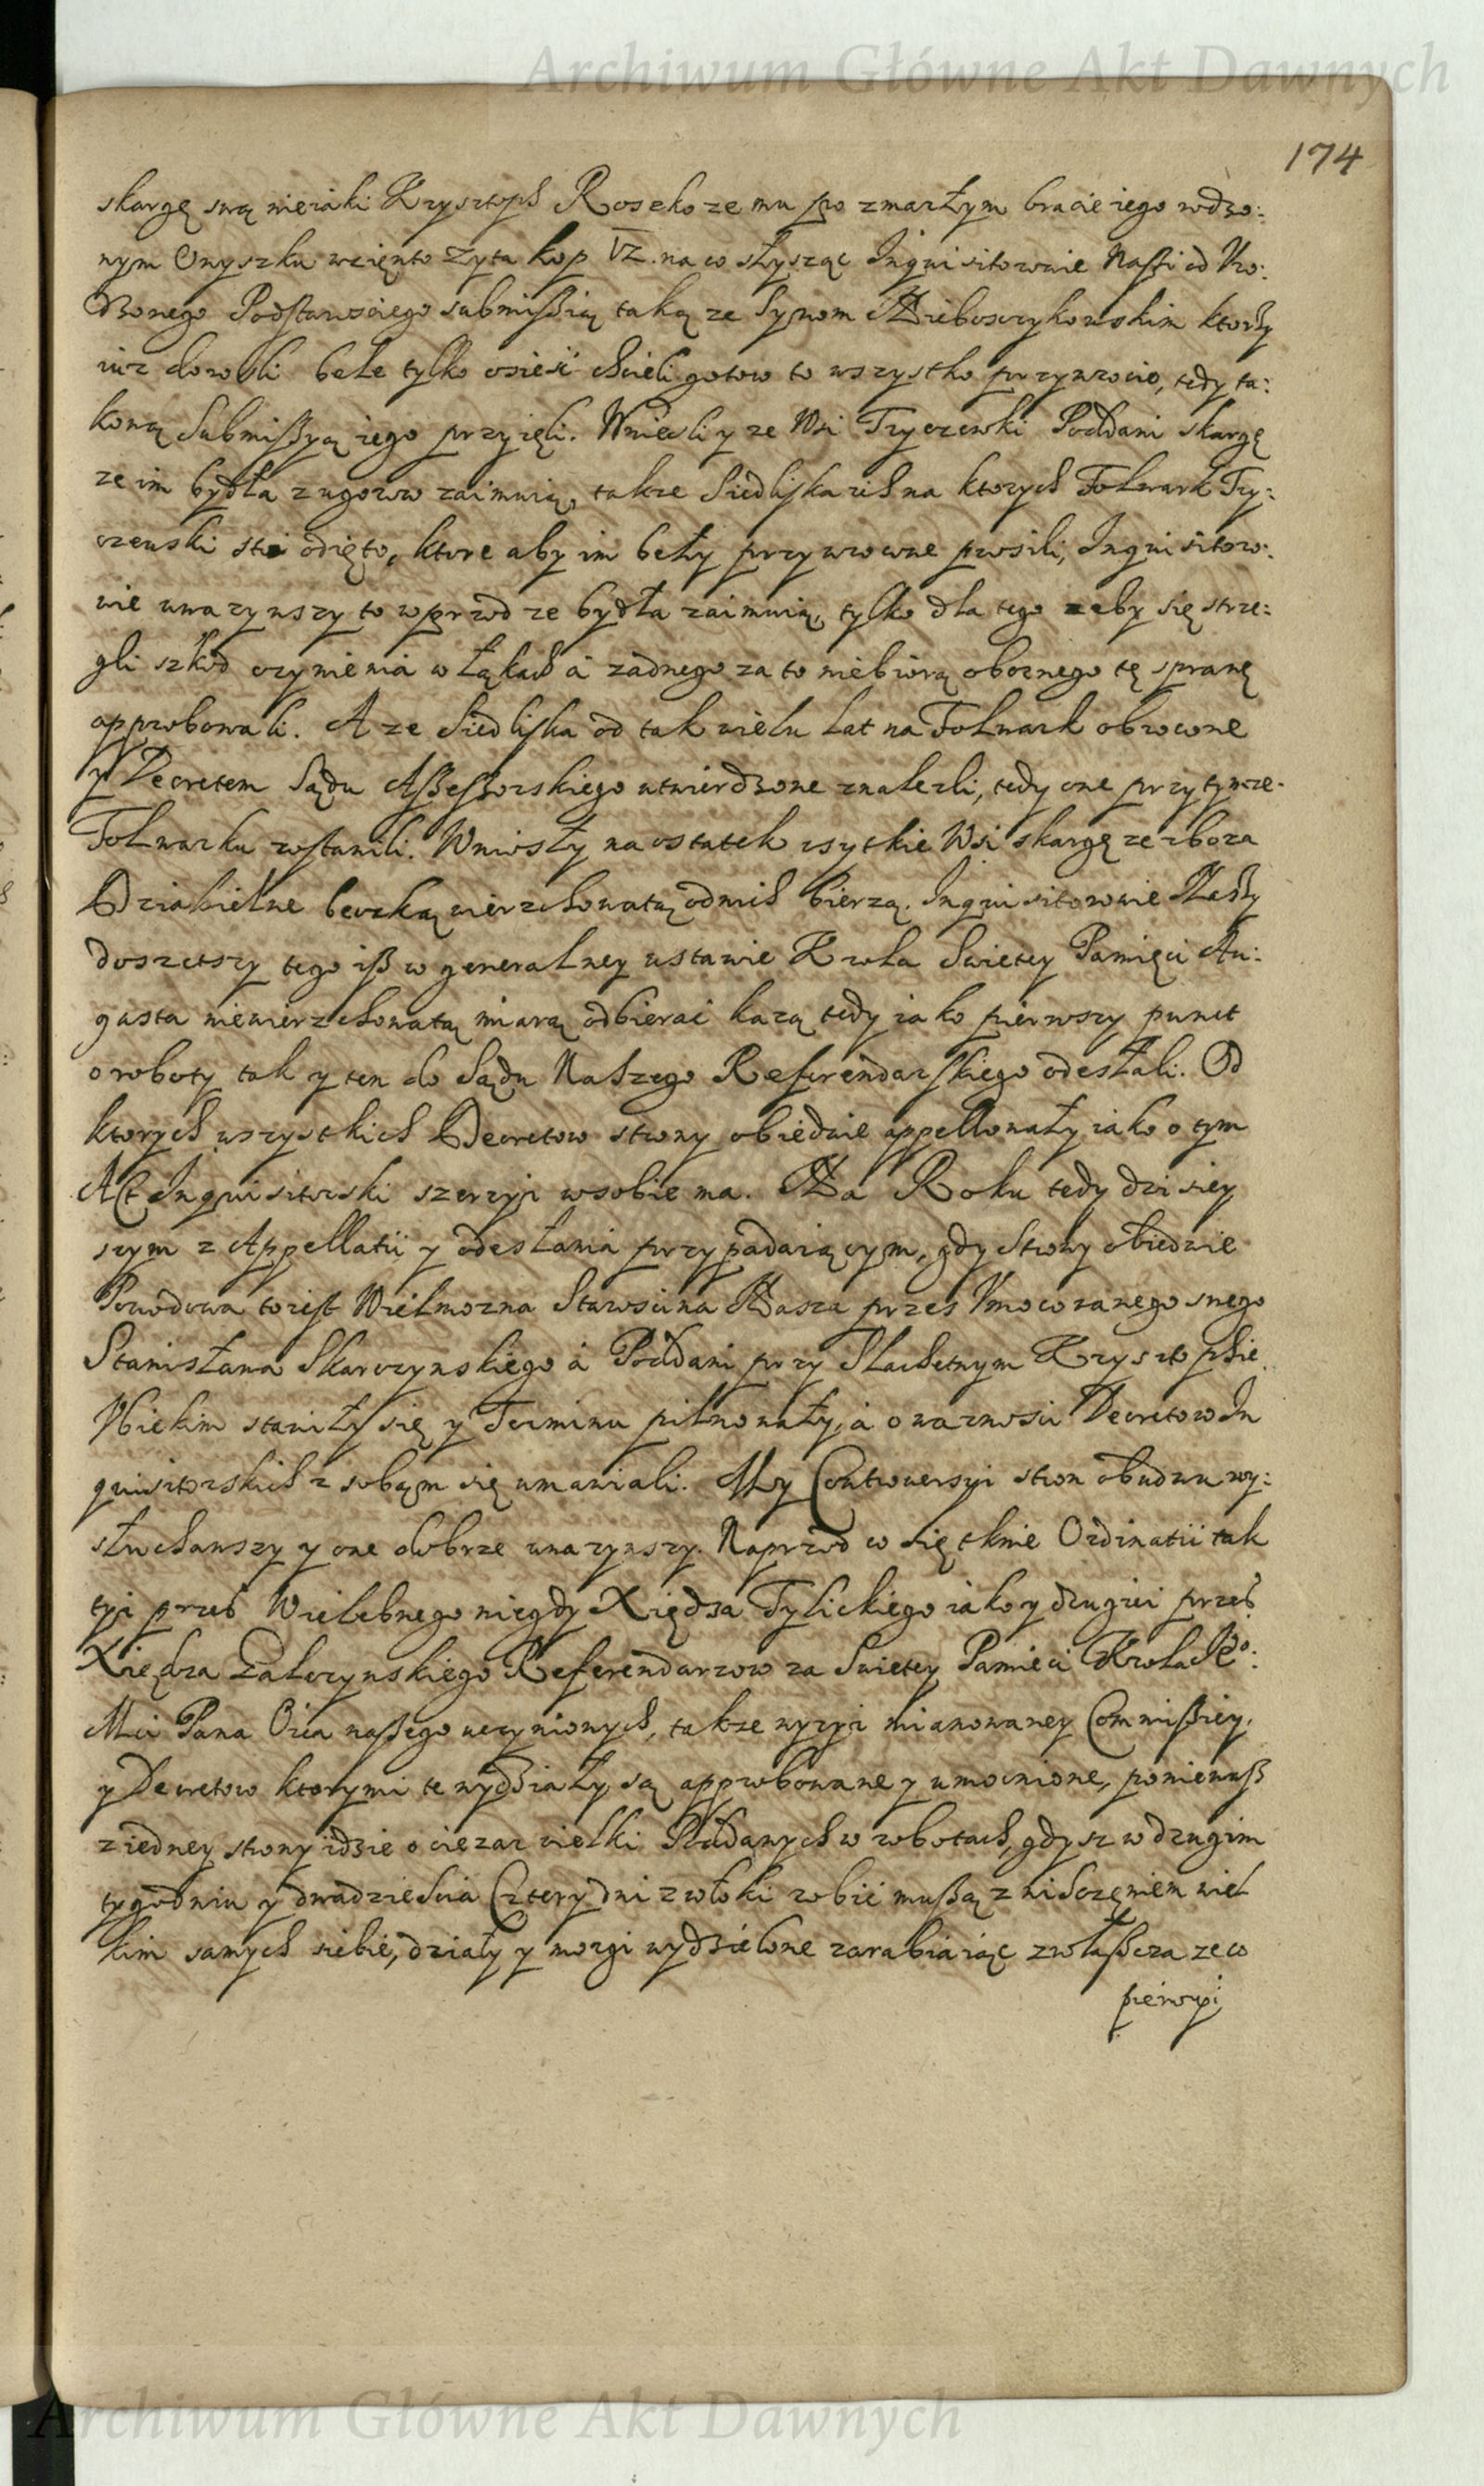 Archiwum Główne Akt Dawnych
174
skargę swą nieiaki Krysztoph Rosek oze mu po zmarłym bracie iego rodzo:
nym Onyszku wzięnto Zyta kop VZ. na co słysząc Inquisitorowie Naszi od Vro:
dzonego Podstarosciego submissią taką ze Synom Nieboszczykowskim ktorzy
iuz dorosli bele tylko osieść chcieli gotow to wszystko przywrocic, tedy ta:
kową Submissyą iego przyięli. Wniesli y ze Wsi Tryczewki Poddani skargę
ze im bydła z ugorow zaimuią, takze Siedliska ich na ktorych Folwark Try:
czewski stoi odięto, ktore aby im beły przywrocone prosili, Inquisitoro:
wie uwazywszy to wprzod ze bydła zaimuią, tylko dla tego zeby się strze:
gli szkod czynienia w łąkach a zadnego za to niebiorą obornego tę sprawę
approbowali. A ze Siedliska od tak wielu lat na Folwark obrocone
y Decretem Sądu Assessorskiego utwierdzone znalezli, tedy one przy tymze
Folwarku zostawili. Wniosły na ostatek wsytkie Wsi skargę ze zboza
Dziakielne beczką wierzchowatą od nich bierzą. Inquisitorowie Naszy
doszetszy tego isz w generalney ustawie Krola Swietey Pamięci Au:
gusta niewierzchowatą miarą odbierać kazą tedy iako pierwszy punct
o roboty tak y ten do Sądu Naszego Referendarskiego odesłali. Od
ktorych wszystkich Decretow strony obiedwie appellowały iako o tym
Act Inquisitorski szerzyi w sobie ma. Na Roku tedy dzisiey
szym z Appellatii y odesłania przypadaiącym, gdy Strony obiedwie
Powodowa toiest Wielmozna Starościna Nasza przes Vmocowanego swego
Stanisława Skarczynskiego a Poddani przy Slachetnym Krysztophie
Wickim stawiły się y Terminu pilnowały, a o wazności Decretow In
quisitorskich z sobąm się umawiali. My Controuersyi stron obudwu wy:
słuchawszy y one dobrze uwazywszy. Naprzod co się tknie Ordinatii tak
tyi przes Wielebnego niegdy Xiędza Tylickiego iako y drugiei przes
Xiędza Zalczynskiego Referendarzow za Swietey Pamieci Krola Jº:
Mci Pana Oica naszego uczynionych, takze wyzyi mianowaney Commissiey,
y Decretow ktorymi te wydziały są approbowane y umocnione, poniewasz
z iedney strony idzie o ciezar wielki Poddanych w robotach, gdysz w drugim
tygodniu y dwadziescia Cztery dni z włoki robić muszą z niszczęniem wiel
kim samych siebie, działy y morgi wydzielone zarabiaiąc zwłaszcza ze co
pierwyi
Archiwum Główne Akt Dawnych